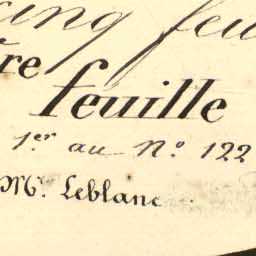 cinq feu
re feuille
1er au No. 122
Mr. Leblanc